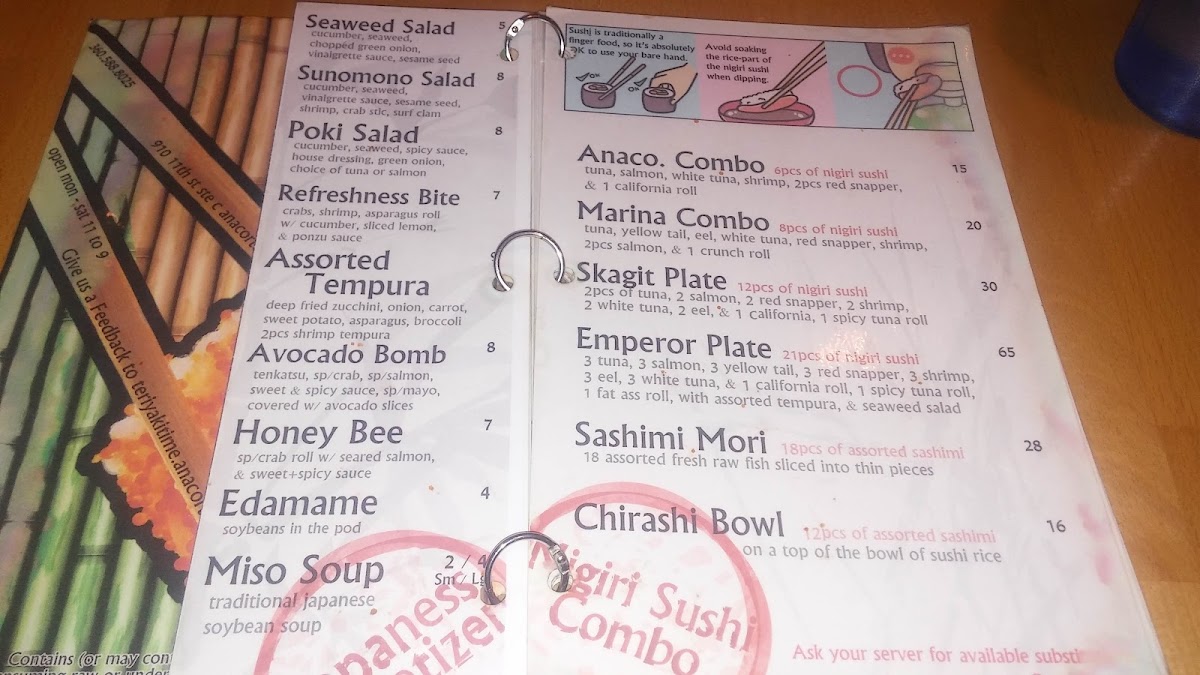 360.588.8025
910 11th st ste c anacort
open mon - sat 11 to 9
Give us a Feedback to teriyakitime.anacort
Contains (or may con
Seaweed Salad 5
cucumber, seaweed,
chopped green onion,
vinaigrette sauce, sesame seed
Sunomono Salad 8
cucumber, seaweed,
vinaigrette sauce, sesame seed,
shrimp, crab stic, surf clam
Poki Salad 8
cucumber, seaweed, spicy sauce,
house dressing, green onion,
choice of tuna or salmon
Refreshness Bite 7
crabs, shrimp, asparagus roll
w/ cucumber, sliced lemon,
& ponzu sauce
Assorted
Tempura
deep fried zucchini, onion, carrot,
sweet potato, asparagus, broccoli
2pcs shrimp tempura
Avocado Bomb 8
tenkatsu, sp/crab, sp/salmon,
sweet & spicy sauce, sp/mayo,
covered w/ avocado slices
Honey Bee 7
sp/crab roll w/ seared salmon,
& sweet+spicy sauce
Edamame 4
soybeans in the pod
Miso Soup 2 / 4
Sm / Lg
traditional japanese
soybean soup
Sushi is traditionally a
finger food, so it's absolutely
OK to use your bare hand.
Avoid soaking
the rice-part of
the nigiri sushi
when dipping.
Anaco. Combo 6pcs of nigiri sushi 15
tuna, salmon, white tuna, shrimp, 2pcs red snapper,
& 1 california roll
Marina Combo 8pcs of nigiri sushi 20
tuna, yellow tail, eel, white tuna, red snapper, shrimp,
2pcs salmon, & 1 crunch roll
Skagit Plate 12pcs of nigiri sushi 30
2pcs of tuna, 2 salmon, 2 red snapper, 2 shrimp,
2 white tuna, 2 eel, & 1 california, 1 spicy tuna roll
Emperor Plate 21pcs of nigiri sushi 65
3 tuna, 3 salmon, 3 yellow tail, 3 red snapper, 3 shrimp,
3 eel, 3 white tuna, & 1 california roll, 1 spicy tuna roll,
1 fat ass roll, with assorted tempura, & seaweed salad
Sashimi Mori 18pcs of assorted sashimi 28
18 assorted fresh raw fish sliced into thin pieces
Chirashi Bowl 12pcs of assorted sashimi 16
on a top of the bowl of sushi rice
Nigiri Sushi
Combo
Ask your server for available substi